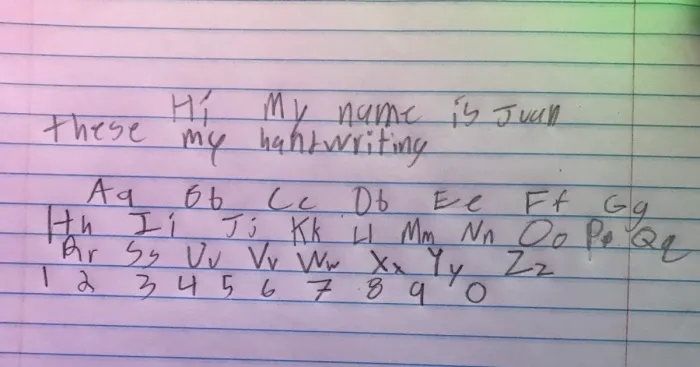 Hi My name is Juan
these my hantwriting
Aa Bb Cc Db Ee Ff Gg
Hh Ii Jj Kk Ll Mm Nn Oo Pp Qq
Rr Ss Uu Vv Ww Xx Yy Zz
1 2 3 4 5 6 7 8 9 0